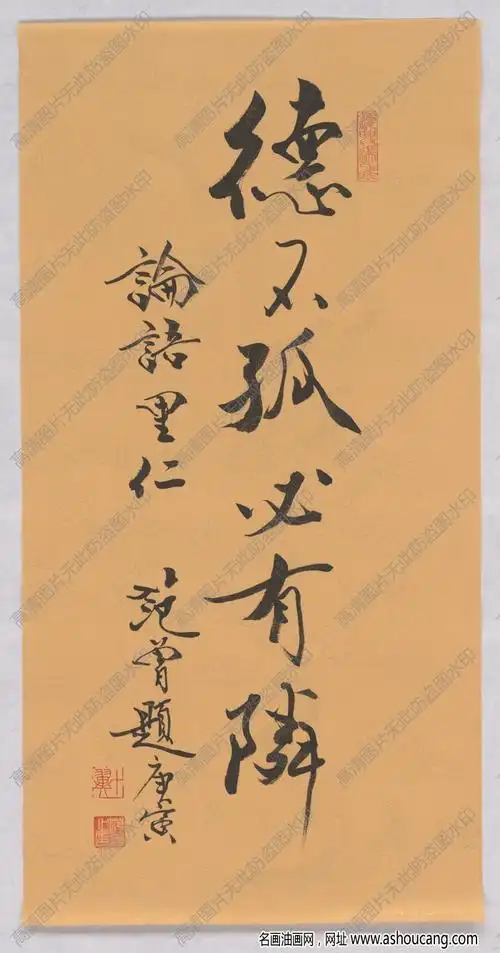 德不孤必有隣
論語里仁 范曾題庚寅
高清图片无此防盗图水印
名画油画网，网址 www.ashoucang.com